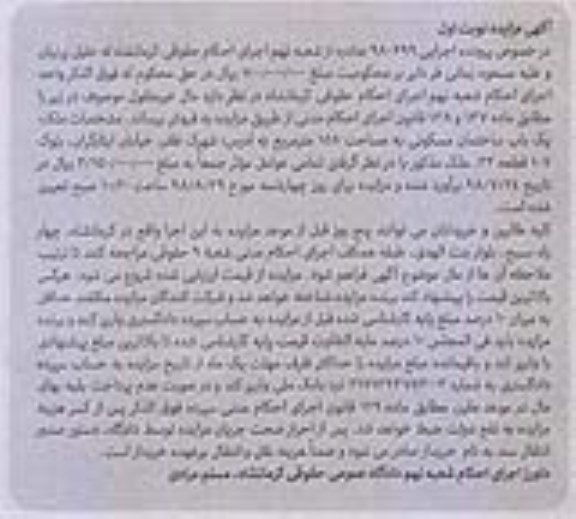 آگهی مزایده نوبت اول
در خصوص پرونده اجرایی ۹۸۰۴۹۹ صادره از شعبه نهم اجرای احکام حقوقی کرمانشاه له جلیل
و علیه مسعود زمانی فر دایر بر محکومیت مبلغ ریال در حق محکوم له فوق الذکر واحد
اجرای احکام شعبه نهم اجرای احکام حقوقی کرمانشاه در نظر دارد مال غیرمنقول موصوف در زیر را
مطابق ماده ۱۳۷ و ۱۳۸ قانون اجرای احکام مدنی از طریق مزایده به فروش برساند. مشخصات ملک:
یک باب ساختمان مسکونی به مساحت ۱۸۸ مترمربع به آدرس: شهرک ظفر، خیابان ایثارگران، بلوک
۱۰۷ قطعه ۲۳. ملک مذکور با در نظر گرفتن تمامی عوامل موثر جمعاً به مبلغ ریال در
تاریخ ۹۸/۷/۲۴ برآورد شده و مزایده برای روز چهارشنبه مورخ ۹۸/۸/۲۹ ساعت ۱۰:۳۰ صبح تعیین
شده است.
کلیه طالبین و خریداران می توانند پنج روز قبل از موعد مزایده به این اجرا واقع در کرمانشاه، چهار
راه بسیج، بلوار بنت الهدی، طبقه همکف اجرای احکام مدنی شعبه ۹ حقوقی مراجعه کنند تا ترتیب
ملاحظه آن ها از مال موضوع آگهی فراهم شود. مزایده از قیمت ارزیابی شده شروع می شود. هرکس
بالاترین قیمت را پیشنهاد کند برنده مزایده شناخته خواهد شد و شرکت کنندگان مزایده مکلفند حداقل
به میزان ۱۰ درصد مبلغ پایه کارشناسی شده قبل از مزایده به حساب سپرده دادگستری واریز کنند و برنده
مزایده باید فی المجلس ۱۰ درصد مابه التفاوت قیمت پایه کارشناسی شده تا بالاترین مبلغ پیشنهادی
را واریز کند و باقیمانده مبلغ مزایده را حداکثر ظرف مهلت یک ماه از تاریخ مزایده به حساب سپرده
دادگستری به شماره نزد بانک ملی واریز کند و در صورت عدم پرداخت بقیه بهای
مال در موعد مقرر، مطابق ماده ۱۲۹ قانون اجرای احکام مدنی سپرده فوق الذکر پس از کسر هزینه
مزایده به نفع دولت ضبط خواهد شد. پس از احراز صحت جریان مزایده توسط دادگاه، دستور صدور
انتقال سند به نام خریدار صادر می شود و ضمناً هزینه نقل و انتقال برعهده خریدار است.
دادورز اجرای احکام شعبه نهم دادگاه عمومی حقوقی کرمانشاه، مسلم مرادی